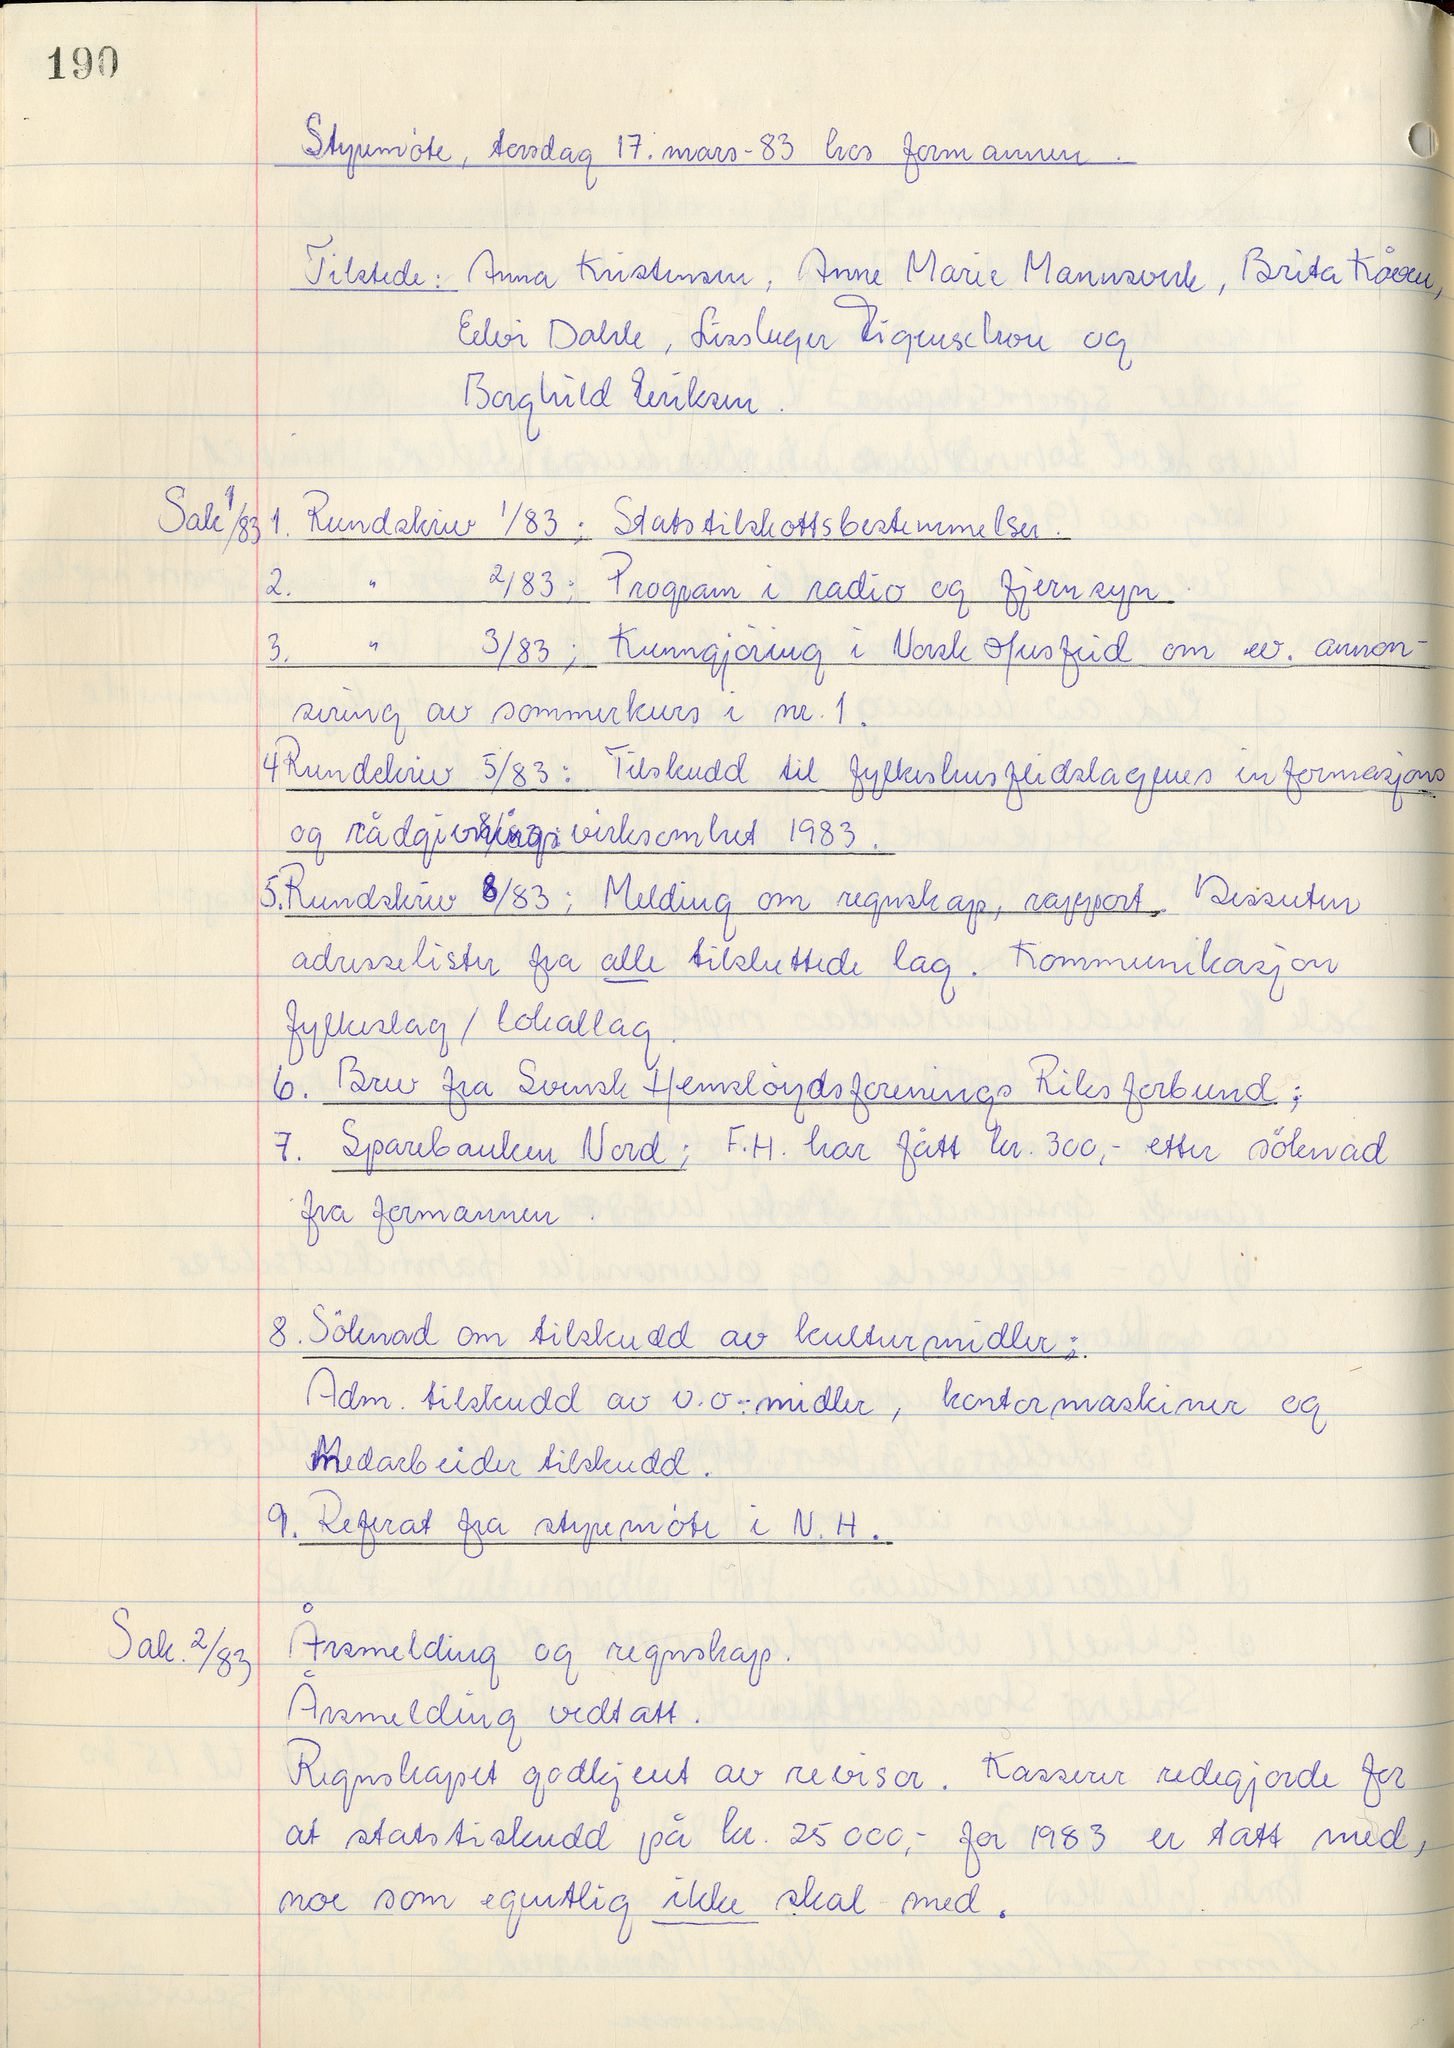 190
Styremöte, torsdag 17. mars - 83 hos formannen.
Tilstede: Anna Kristensen, Anne Marie Mannsverk, Brita Kåven,
Edvi Dahle, Figenschou og
Borghild Eriksen.
Sak 1/83 1. Rundskriv 1/83; Statstilskottsbestemmelser.
2. " 2/83; Program i radio og fjernsyn
3. " 3/83; Kunngjöring i Norsk Husflid om ev. annon-
sering av sommerkurs i nr. 1.
4 Rundskriv 5/83: Tilskudd til fylkeshusflidslagenes informasjons
og rådgivnings virksomhet 1983.
5. Rundskriv 8/83; Melding om regnskap, rapport. Dessuten
adresselister fra alle tilsluttede lag. Kommunikasjon
fylkeslag / lokallag.
6. Brev fra Svensk Hemslöydsforenings Riksforbund;
7. Sparebanken Nord; F.H. har fått kr. 300,- etter söknad
fra formannen.
8. Söknad om tilskudd av kulturmidler;
Adm. tilskudd av v.o-midler, kontormaskiner og
Medarbeider tilskudd.
9. Referat fra styremöte i N.H.
Sak. 2/83 Årsmelding og regnskap.
Årsmelding vedtatt.
Regnskapet godkjent av revisor. Kasserer redegjorde for
at statstiskudd på kr. 25 000,- for 1983 er tatt med,
noe som egentlig ikke skal med.